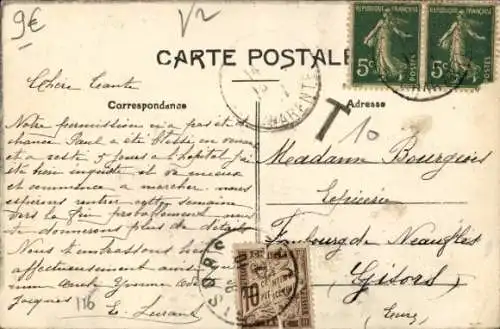 9€
V2
CARTE POSTALE
RÉPUBLIQUE FRANÇAISE
5c
POSTES
RÉPUBLIQUE FRANÇAISE
5c
POSTES
CHARENTE
T
10
Correspondance
Adresse
Chère Tante
Notre permission n'a pas été de
chance Paul a été blessé en venant
et a resté 3 jours à l'hopital j'ai
été bien inquiète il va mieux
et commence a marcher nous
espérons rentrer cette semaine
vers la fin probablement nous
te donnerons plus de détails
Nous t'embrassons bien
affectueusement ainsi
Yvonne
Jacques
116
Madame Bourgeois
Epicerie
Faubourg de Neaufles
Gisors
Eure
GISORS
10
CENTIMES
A PERCEVOIR